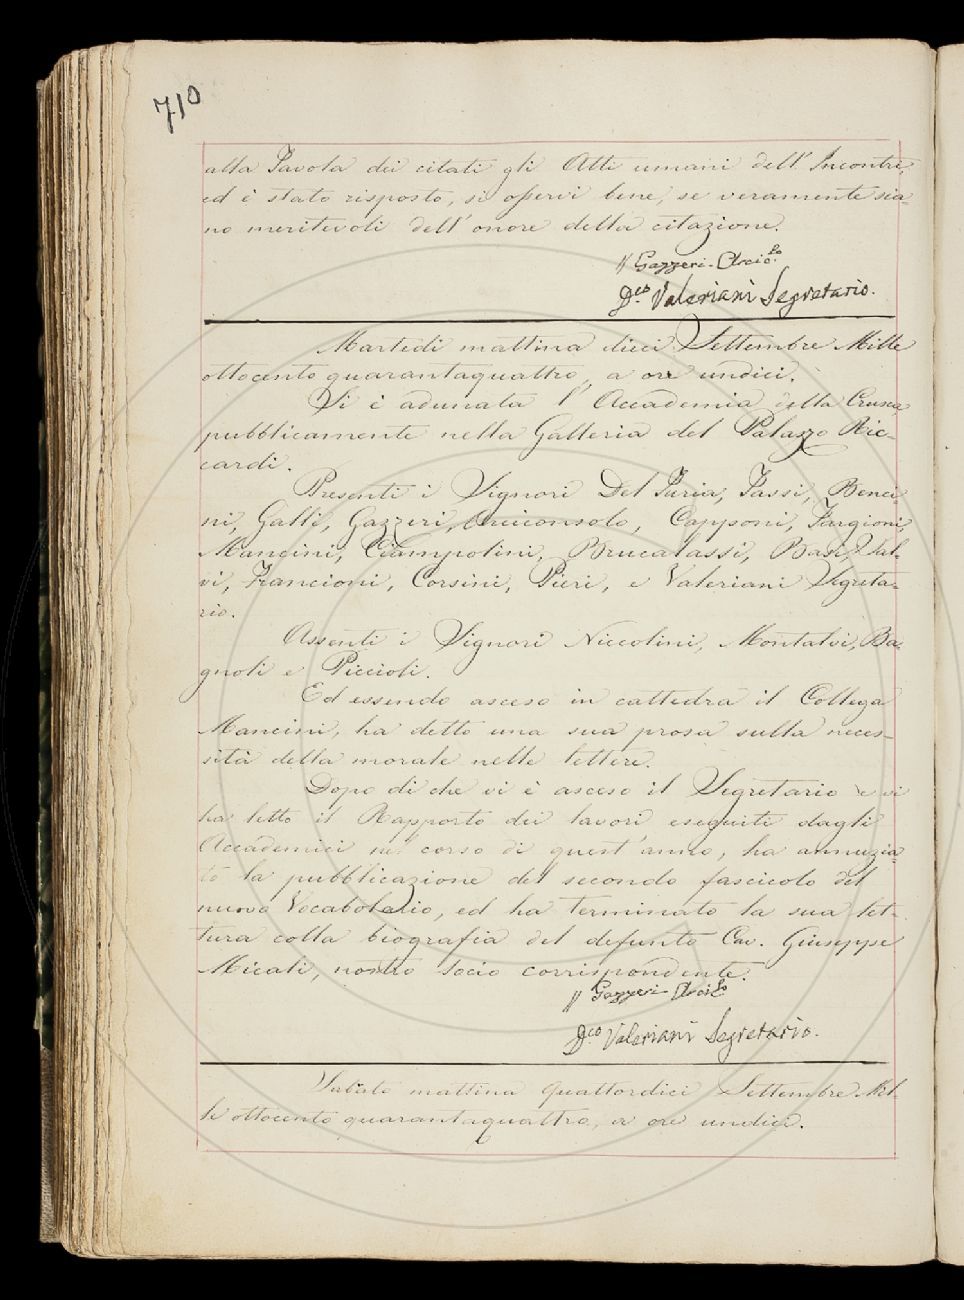 710
alla Tavola dei citati gli Atti umani dell'Incontri,
ed è stato risposto, si osservi bene, se veramente sia-
no meritevoli dell'onore della citazione.
Gazzeri Arcic.lo
D.co Valeriani Segretario.
Martedì mattina dieci Settembre Mille
ottocento quarantaquattro, a ore undici.
Si è adunata l'Accademia della Crusca
pubblicamente nella Galleria del Palazzo Ric-
cardi.
Presenti i Signori Del Furia, Tassi, Benci-
ni, Galli, Gazzeri, Arciconsolo, Capponi, Targioni,
Mancini, Ciampolini, Brucalassi, Basi, Sal-
vi, Francioni, Corsini, Pieri, e Valeriani Segreta-
rio.
Assenti i Signori Niccolini, Montalvi, Ba-
gnoli e Piccioli.
Ed essendo asceso in cattedra il Collega
Mancini, ha detto una sua prosa sulla neces-
sità della morale nelle lettere.
Dopo di che vi è asceso il Segretario e vi
ha letto il Rapporto dei lavori eseguiti dagli
Accademici nel corso di quest'anno, ha annuzia-
to la pubblicazione del secondo fascicolo del
nuovo Vocabolario, ed ha terminato la sua let-
tura colla biografia del defunto Cav. Giuseppe
Micali, nostro socio corrispondente.
Gazzeri Arcic.lo
D.co Valeriani Segretario.
Sabato mattina quattordici Settembre Mil-
le ottocento quarantaquattro, a ore undici.